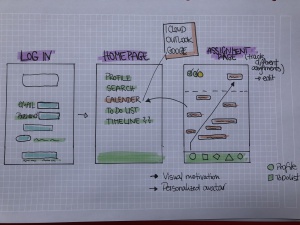 LOG IN
EMAIL
HOMEPAGE
PROFILE
SEARCH
CALENDER
TO DO LIST
TIMELINE
ICLOUD
OUTLOOK
GOOGLE
ASSIGNMENT PAGE
(track different assignments)
→ edit
→ Visual motivation
→ Personalized avatar
Profile
To do list